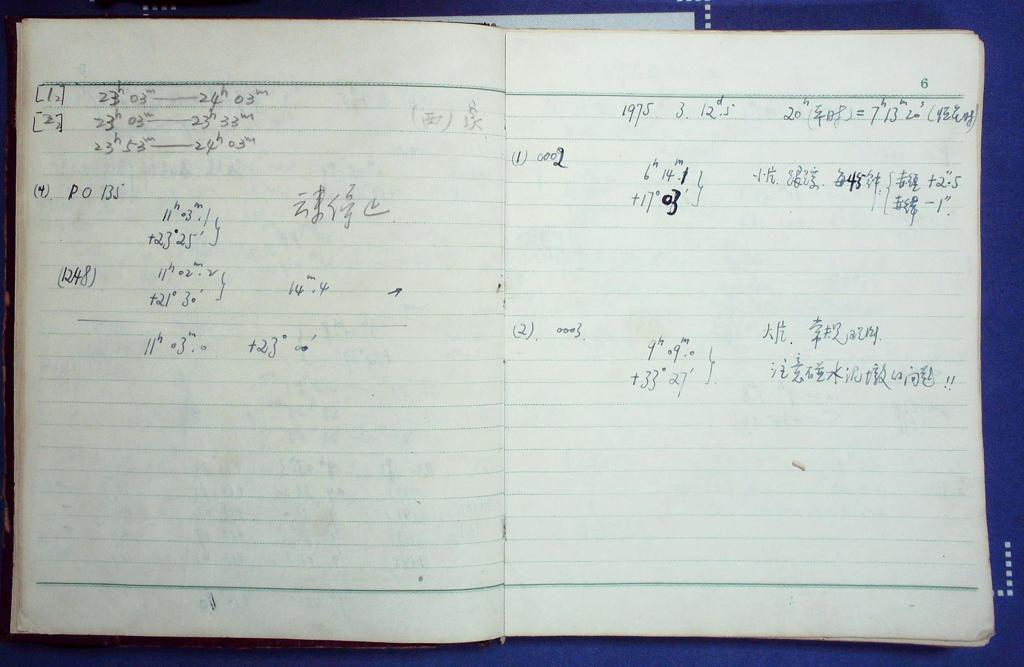 [1₂] 23ʰ 03ᵐ——24ʰ 03ᵐ
[2₂] 23ʰ 03ᵐ——23ʰ 33ᵐ
23ʰ 53ᵐ——24ʰ 03ᵐ
(西)
(4) PO 135
11ʰ 03ᵐ.1
+23° 25′
云来停止
(1248) 11ʰ 02ᵐ.2
+21° 30′
14ᵐ.4 →
11ʰ 03ᵐ.0 +23° 00′
6
1975. 3. 12ᵈ.5 20ʰ (平时) = 7ʰ 13ᵐ 20ˢ (恒星时)
(1) 0002
6ʰ 14ᵐ.1
+17° 03′
小片. 跟踪. 每45分 { 赤经 +2″.5
赤纬 -1″.
(2). 0003.
9ʰ 09ᵐ.0
+33° 27′
大片. 常规观测.
注意碰水泥墩的问题!!